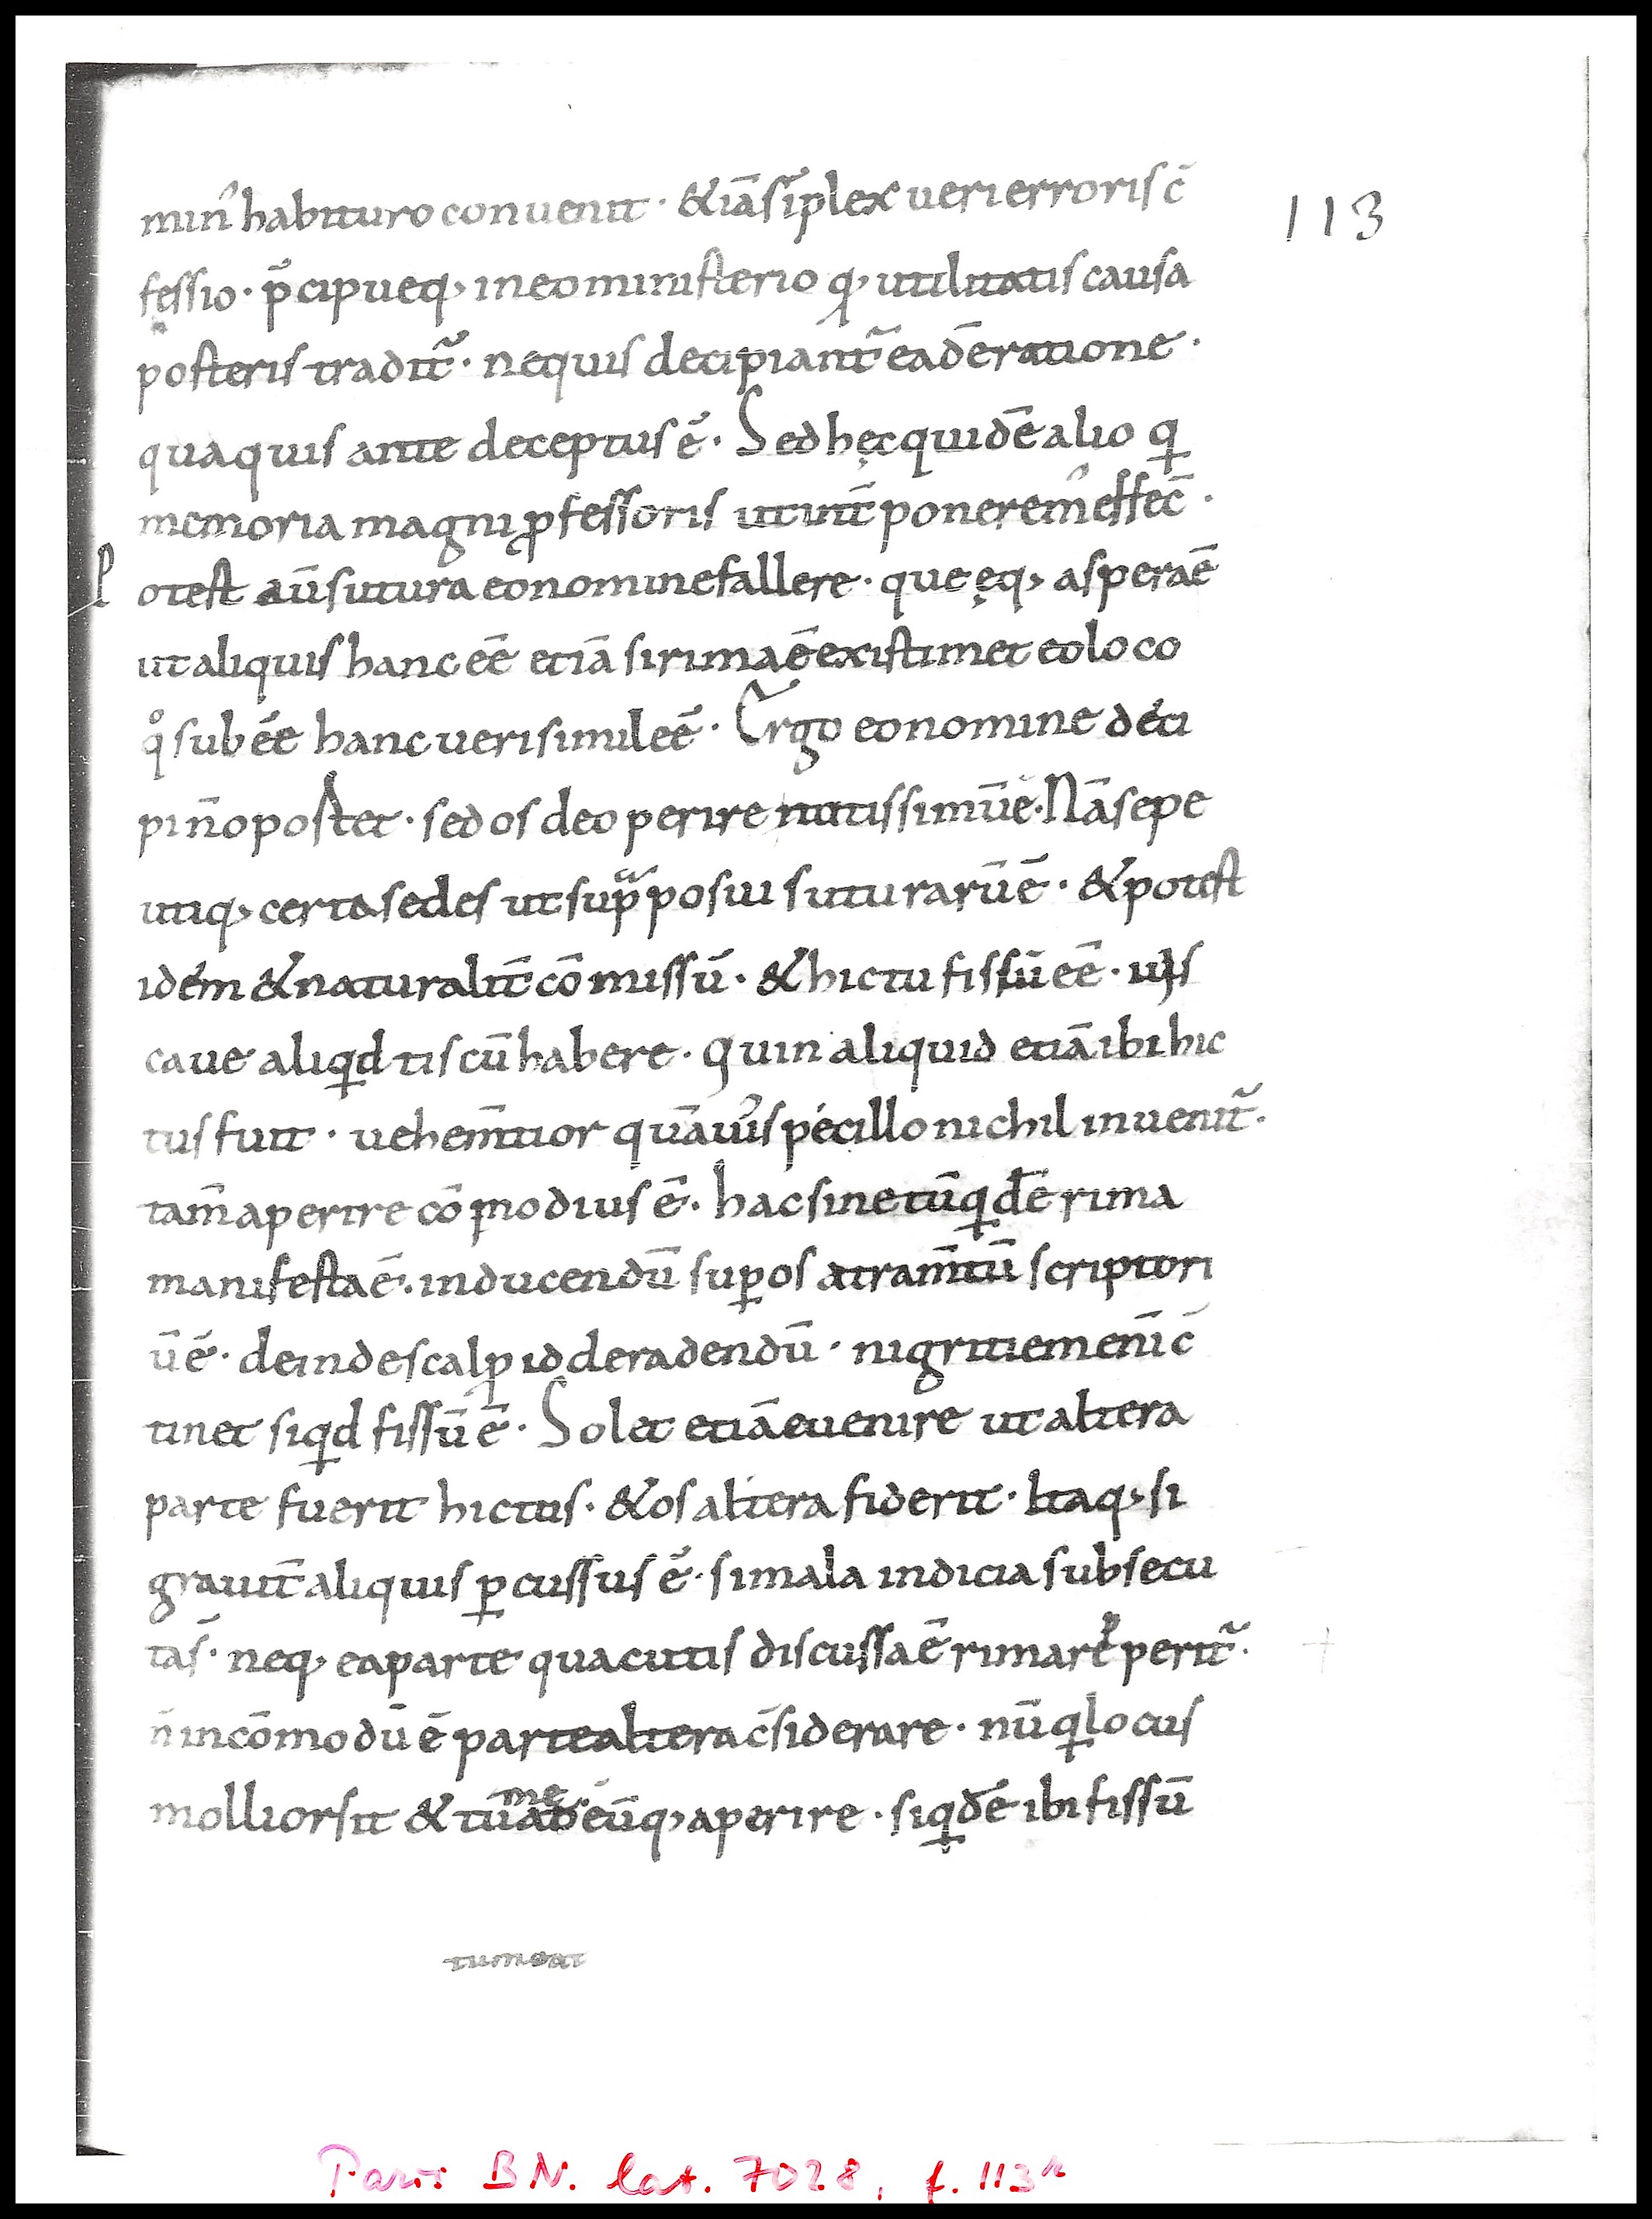 113
minꝰ habituro conuenit · & iā sīplex ueri erroris c̄
fessio · p̄cipueq; in eo ministerio q; utilitatis causa
posteris tradit᷑ · nequis decipiant᷑ eadē ratione ·
qua quis ante deceptus ē · Sed hęc quidē alio ꝗ
memoria magni ꝓfessoris uti int̄poneremꝰ effec̄ ·
Potest aū sutura eo nomine fallere · que ęq; aspera ē
ut aliquis hanc eē etiā si rima ē existimet eo loco
qͦ subeē hanc uerisimile ē · Ergo eo nomine deci
pi n̄ opostet · sed os deo perire tutissimū ē · Nā sepe
utiq; certa sedes ut supͣ posui suturarū ē · & potest
idem & naturalit̄ cōmissū · & hictu fissū eē · uł is
caue aliqd tis cū habere · quin aliquid etiā ibi hic
tus fuit · uehem̄tior quāuis specillo nichil inuenit᷑ ·
tam̄ aperire cōmodius ē · hac si ne tū ꝗdē rima
manifesta ē · inducendū suꝑ os atram̄tū scriptori
ū ē · deinde scalꝓ id deradendū · nigritiem eni᷑ c̄
tinet siqd fissū ē · Solet etiā euenire ut altera
parte fuerit hictus · & os altera fiderit · Itaq; si
grauit̄ aliquis ꝑcussus ē · si mala indicia subsecu
ta s̄ · neq; ea parte qua cutis discussa ē rima reperit᷑ ·
n̄ incōmodū ē parte altera c̄siderare · nū ꝗ locus
mollior sit & tumeat eūq; aperire · siꝗdē ibi fissū
tumeat
Paris BN. lat. 7028, f. 113r